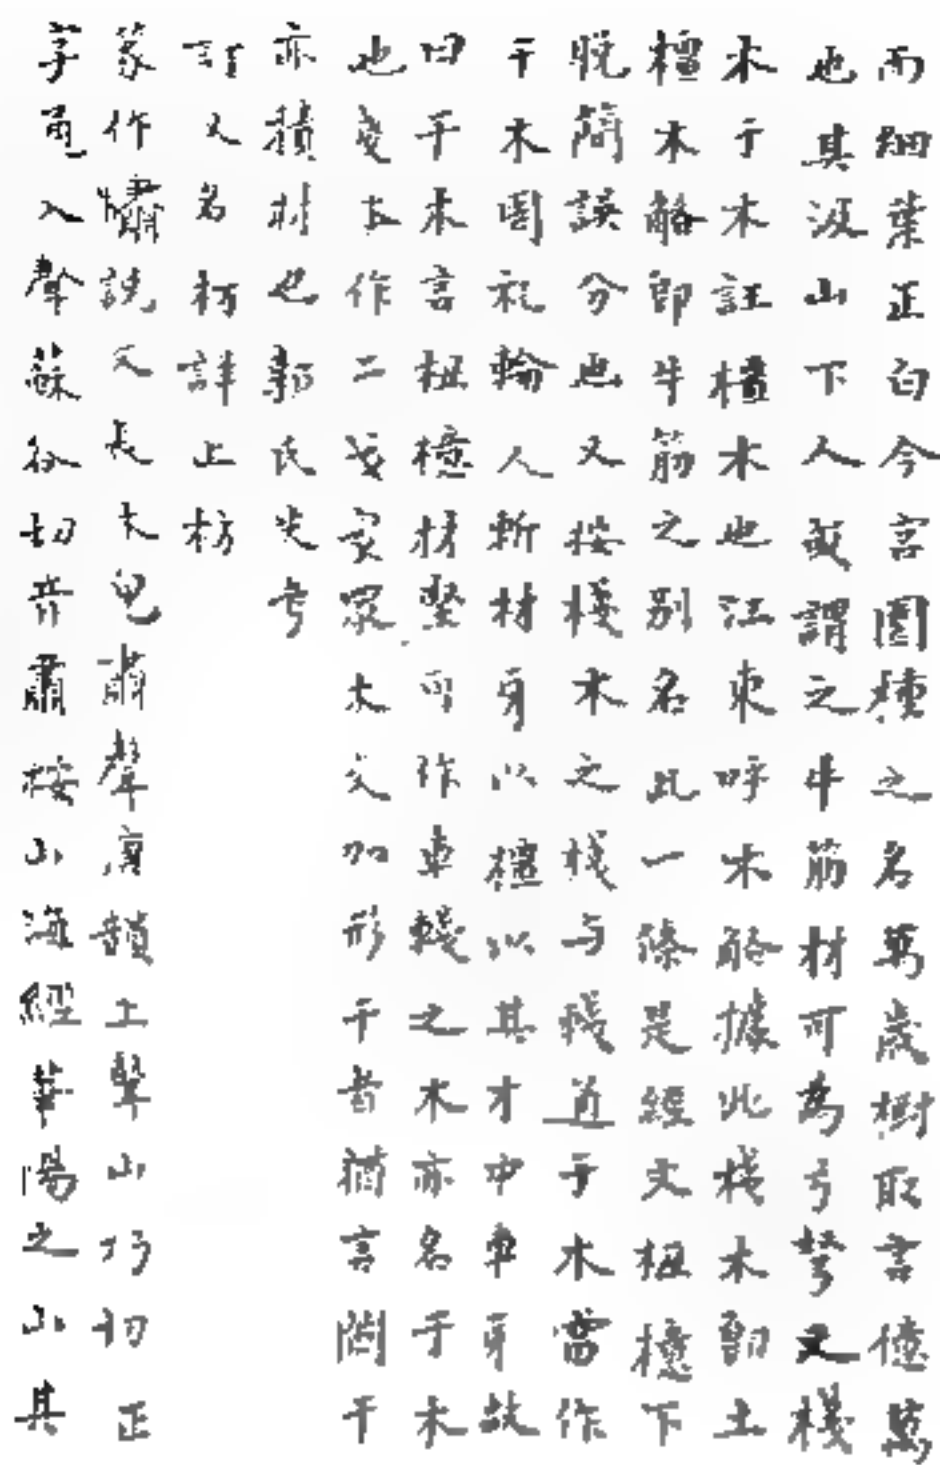 而細葉正白今宮園種之名萬歲樹取言億萬
也其汲山下人或謂之牛筋材可為弓弩又棧
木于木註橿木也江東呼木觡據此棧木即土
橿木觡即牛筋之別名此一條是經文杻檍下
脫簡誤分也又按棧木之棧与輚道于木當作
干木周禮輪人斬材牙以橿以其才中車牙故
曰干木言杻檍材堅可作車輚之木亦名于木
也戔下作二戈象眾木交加形干者猶言闌干
亦積材也郭氏失考
訂又名枋詳上枋
篆作橚說文長木皃肅聲唐韻上聲山巧切正
字通入聲蘇谷切音肅按山海經華陽之山其